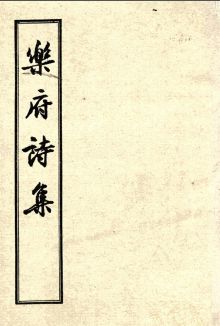 樂府詩集